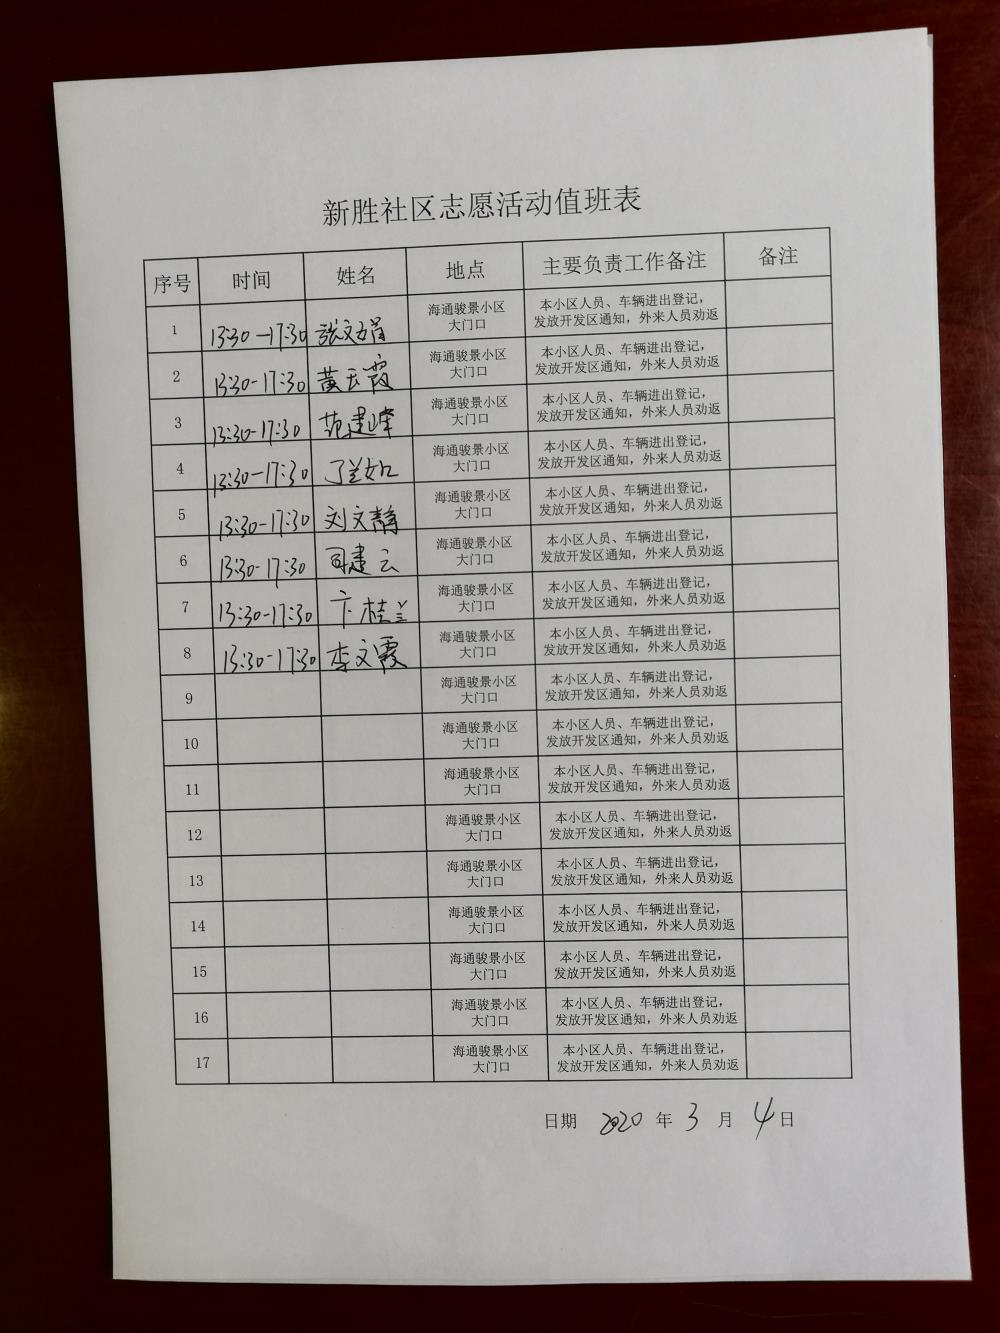 新胜社区志愿活动值班表
序号 时间 姓名 地点 主要负责工作备注 备注
1 13:30-17:30 张文娟 海通骏景小区 本小区人员、车辆进出登记，
大门口 发放开发区通知，外来人员劝返
2 13:30-17:30 黄玉霞 海通骏景小区 本小区人员、车辆进出登记，
大门口 发放开发区通知，外来人员劝返
3 13:30-17:30 范建峰 海通骏景小区 本小区人员、车辆进出登记，
大门口 发放开发区通知，外来人员劝返
4 13:30-17:30 丁兰如 海通骏景小区 本小区人员、车辆进出登记，
大门口 发放开发区通知，外来人员劝返
5 13:30-17:30 刘文静 海通骏景小区 本小区人员、车辆进出登记，
大门口 发放开发区通知，外来人员劝返
6 13:30-17:30 建云 海通骏景小区 本小区人员、车辆进出登记，
大门口 发放开发区通知，外来人员劝返
7 13:30-17:30 卞桂兰 海通骏景小区 本小区人员、车辆进出登记，
大门口 发放开发区通知，外来人员劝返
8 13:30-17:30 李文霞 海通骏景小区 本小区人员、车辆进出登记，
大门口 发放开发区通知，外来人员劝返
9 海通骏景小区 本小区人员、车辆进出登记，
大门口 发放开发区通知，外来人员劝返
10 海通骏景小区 本小区人员、车辆进出登记，
大门口 发放开发区通知，外来人员劝返
11 海通骏景小区 本小区人员、车辆进出登记，
大门口 发放开发区通知，外来人员劝返
12 海通骏景小区 本小区人员、车辆进出登记，
大门口 发放开发区通知，外来人员劝返
13 海通骏景小区 本小区人员、车辆进出登记，
大门口 发放开发区通知，外来人员劝返
14 海通骏景小区 本小区人员、车辆进出登记，
大门口 发放开发区通知，外来人员劝返
15 海通骏景小区 本小区人员、车辆进出登记，
大门口 发放开发区通知，外来人员劝返
16 海通骏景小区 本小区人员、车辆进出登记，
大门口 发放开发区通知，外来人员劝返
17 海通骏景小区 本小区人员、车辆进出登记，
大门口 发放开发区通知，外来人员劝返
日期 2020 年 3 月 4 日